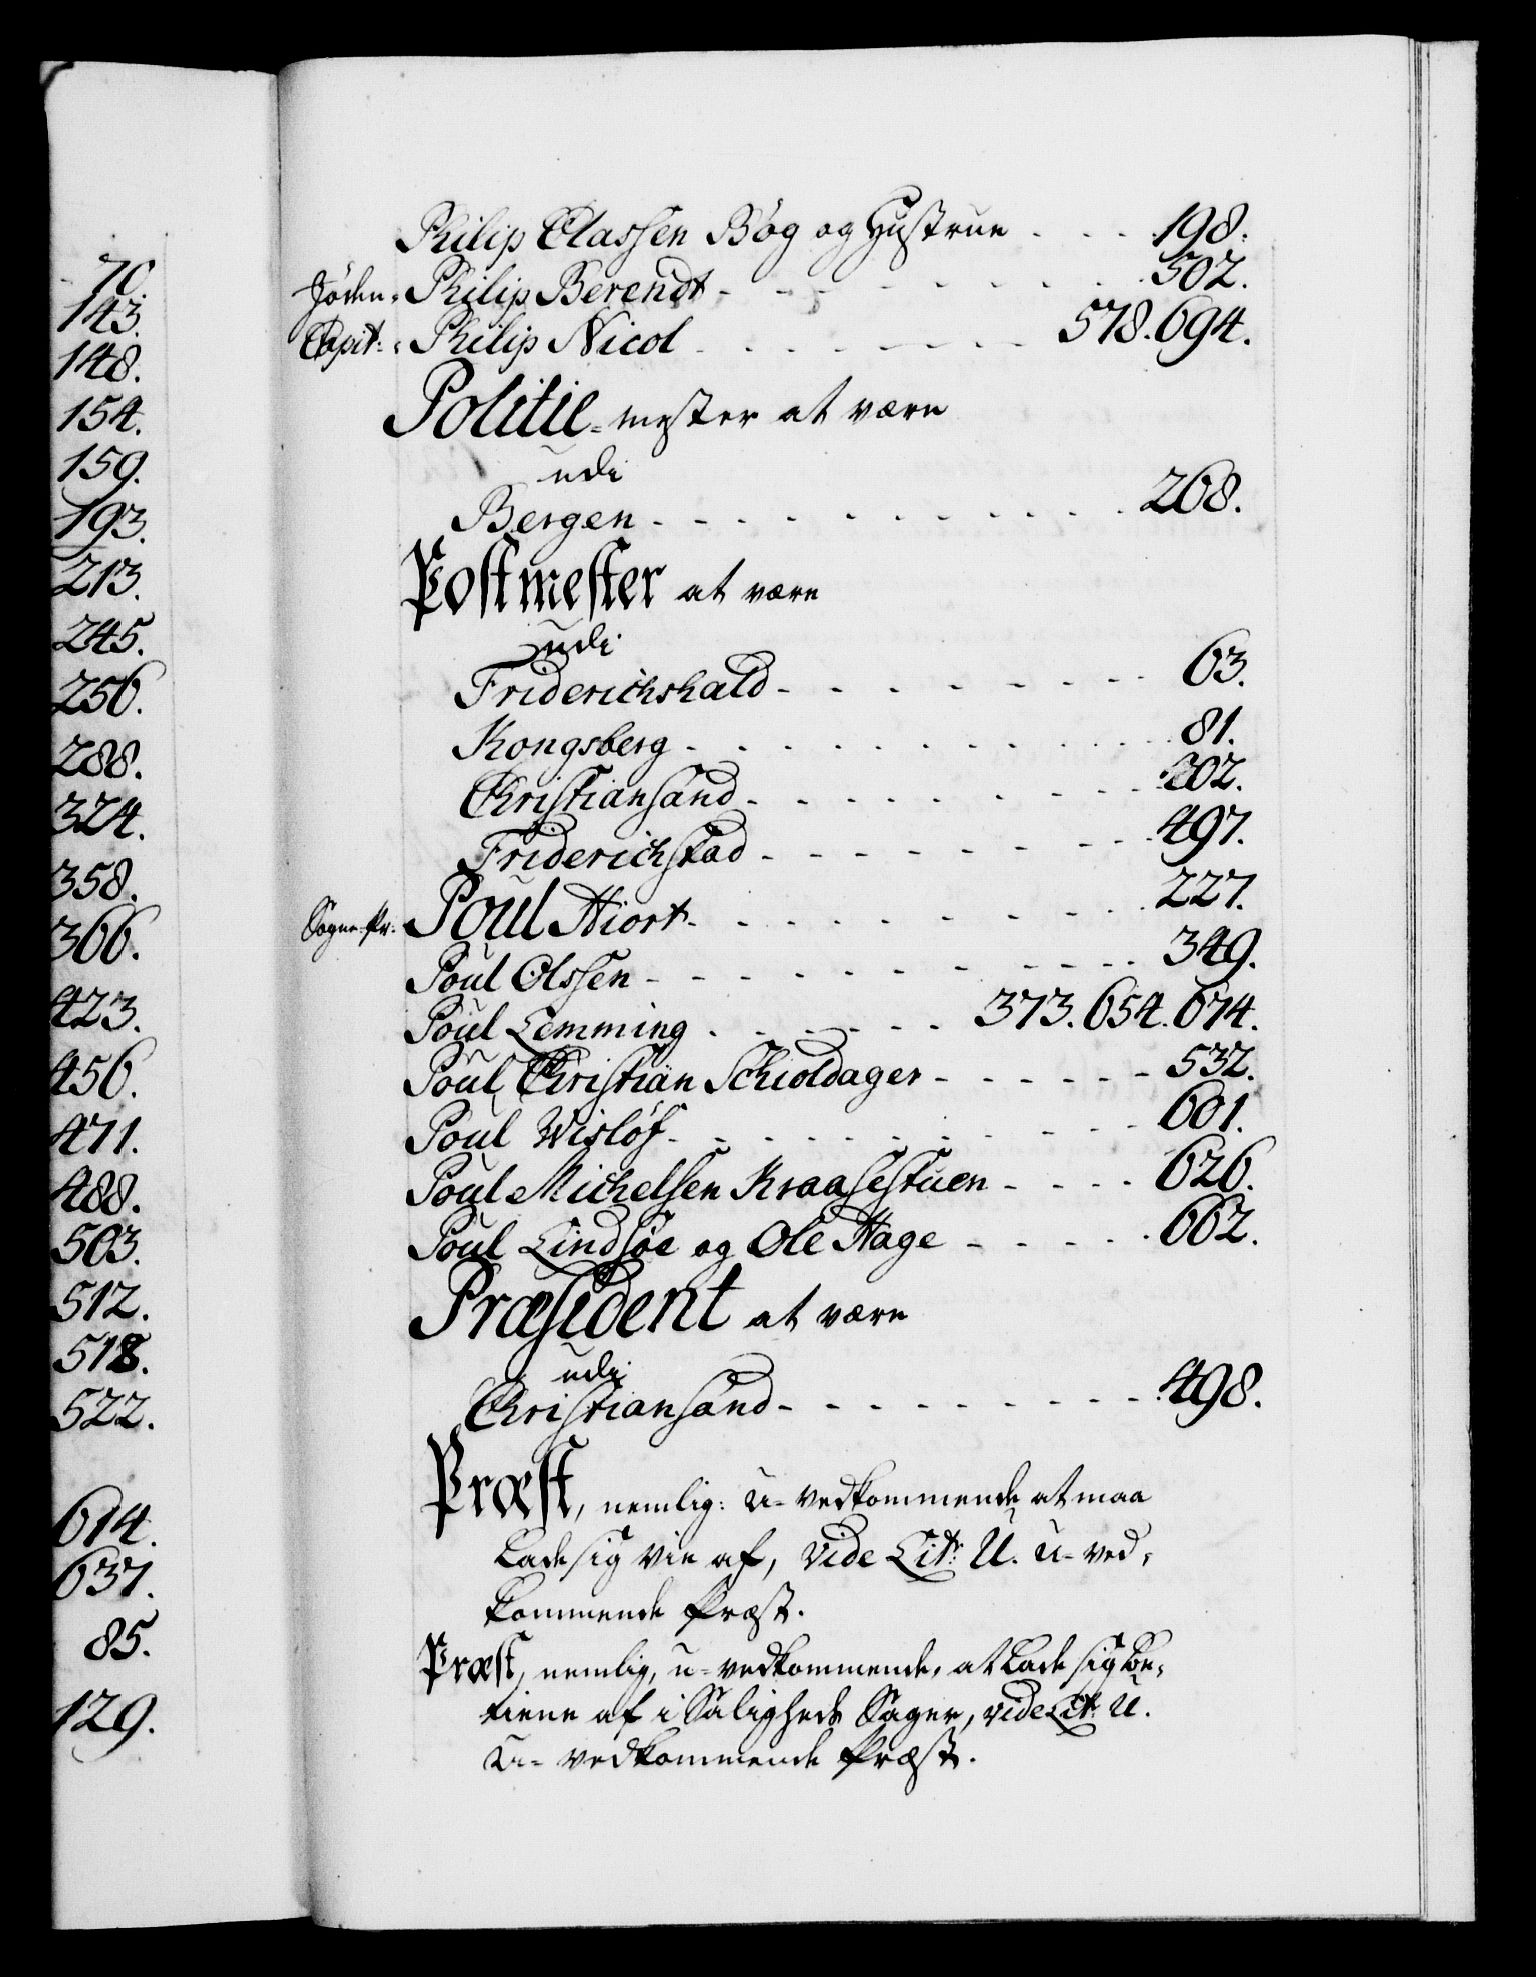 70.
143.
148.
154.
159.
193.
213.
245.
256.
288.
324.
358.
366.
423.
456.
471.
488.
503.
512.
518.
522.
614.
637.
85.
129.
Philip Classen Bøg og Hustrue - - - 198.
Jøden - Philip Berendt - - - - - - - - 502.
Capit: - Philip Nicol - - - - - - - 578. 694.
Politie-mester at være
udi
Bergen - - - - - - - - - - 268.
Postmester at være
udi
Friderichshald - - - - - - - - 63.
Kongsberg - - - - - - - - - - 81.
Christiansand - - - - - - - - 202.
Friderichstad - - - - - - - - 497.
Sogne-Pr: Poul Hiort - - - - - - - - - 227.
Poul Olssen - - - - - - - - - - 349.
Poul Lemming - - - - - 373. 654. 674.
Poul Christian Schioldager - - - - - - 532.
Poul Wisløf - - - - - - - - - - 601.
Poul Michelsen Kraasestuen - - - - 626.
Poul Lindsøe og Ole Hage - - - - - 662.
Præsident at være
udi
Christiansand - - - - - - - - - 498.
Præst, nemlig: u-vedkommende at maa
lade sig vie af, vide Lit: U. u-ved-
kommende Præst.
Præst, nemlig, u-vedkommende, at lade sig be-
tiene af i Saligheds Sager, vide Lit: U.
u-vedkommende Præst.